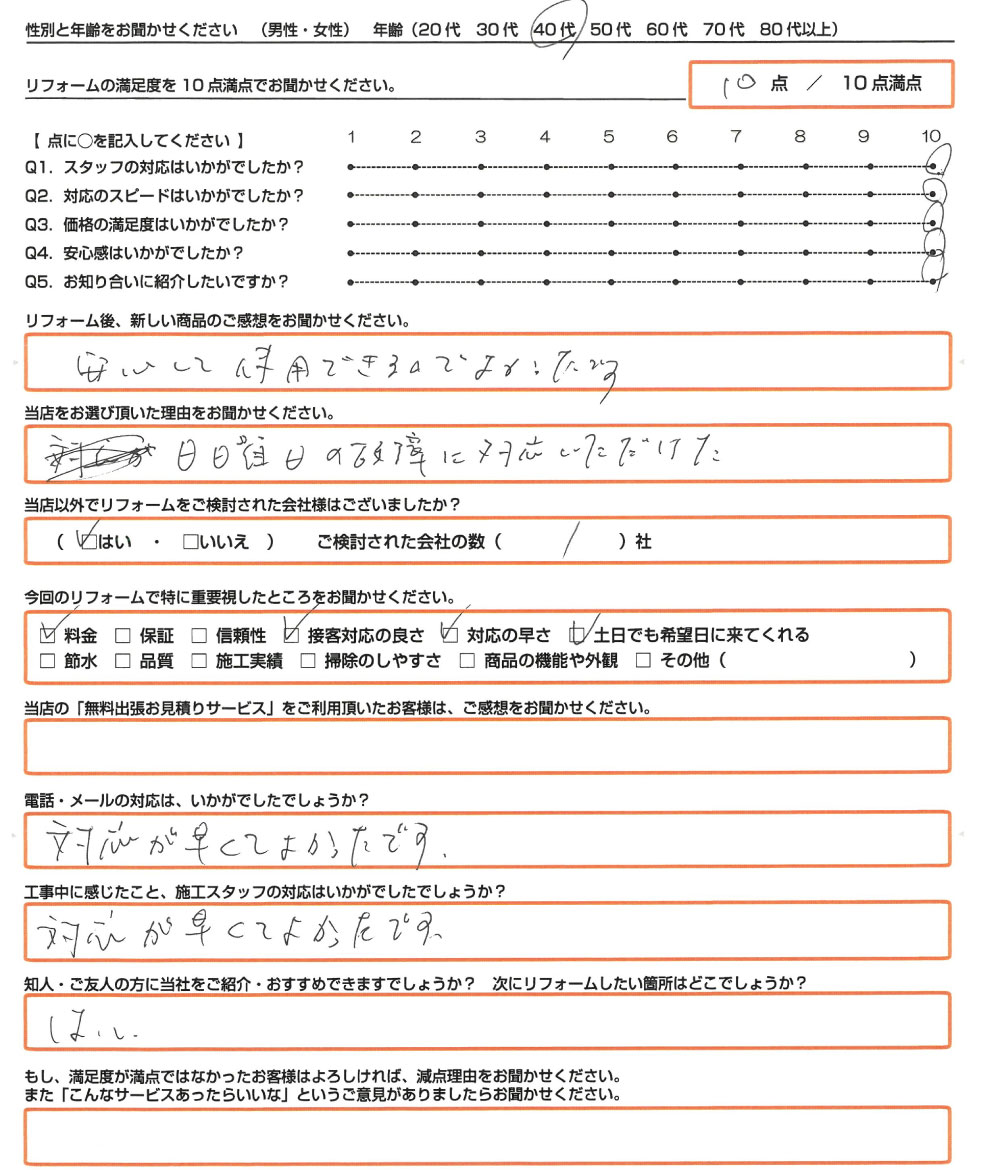 性別と年齢をお聞かせください （男性・女性） 年齢（20代 30代 40代 50代 60代 70代 80代以上）
リフォームの満足度を10点満点でお聞かせください。 10 点 ／ 10点満点
【 点に○を記入してください 】 1 2 3 4 5 6 7 8 9 10
Q1. スタッフの対応はいかがでしたか？
Q2. 対応のスピードはいかがでしたか？
Q3. 価格の満足度はいかがでしたか？
Q4. 安心感はいかがでしたか？
Q5. お知り合いに紹介したいですか？
リフォーム後、新しい商品のご感想をお聞かせください。
安心して使用できるのでよかったです
当店をお選び頂いた理由をお聞かせください。
日曜日の故障に対応いただけた
当店以外でリフォームをご検討された会社様はございましたか？
（ □はい ・ □いいえ ） ご検討された会社の数（ / ）社
今回のリフォームで特に重要視したところをお聞かせください。
□ 料金 □ 保証 □ 信頼性 □ 接客対応の良さ □ 対応の早さ □ 土日でも希望日に来てくれる
□ 節水 □ 品質 □ 施工実績 □ 掃除のしやすさ □ 商品の機能や外観 □ その他（ ）
当店の「無料出張お見積りサービス」をご利用頂いたお客様は、ご感想をお聞かせください。
電話・メールの対応は、いかがでしたでしょうか？
対応が早くてよかったです.
工事中に感じたこと、施工スタッフの対応はいかがでしたでしょうか？
対応が早くてよかったです.
知人・ご友人の方に当社をご紹介・おすすめできますでしょうか？ 次にリフォームしたい箇所はどこでしょうか？
はい.
もし、満足度が満点ではなかったお客様はよろしければ、減点理由をお聞かせください。
また「こんなサービスあったらいいな」というご意見がありましたらお聞かせください。